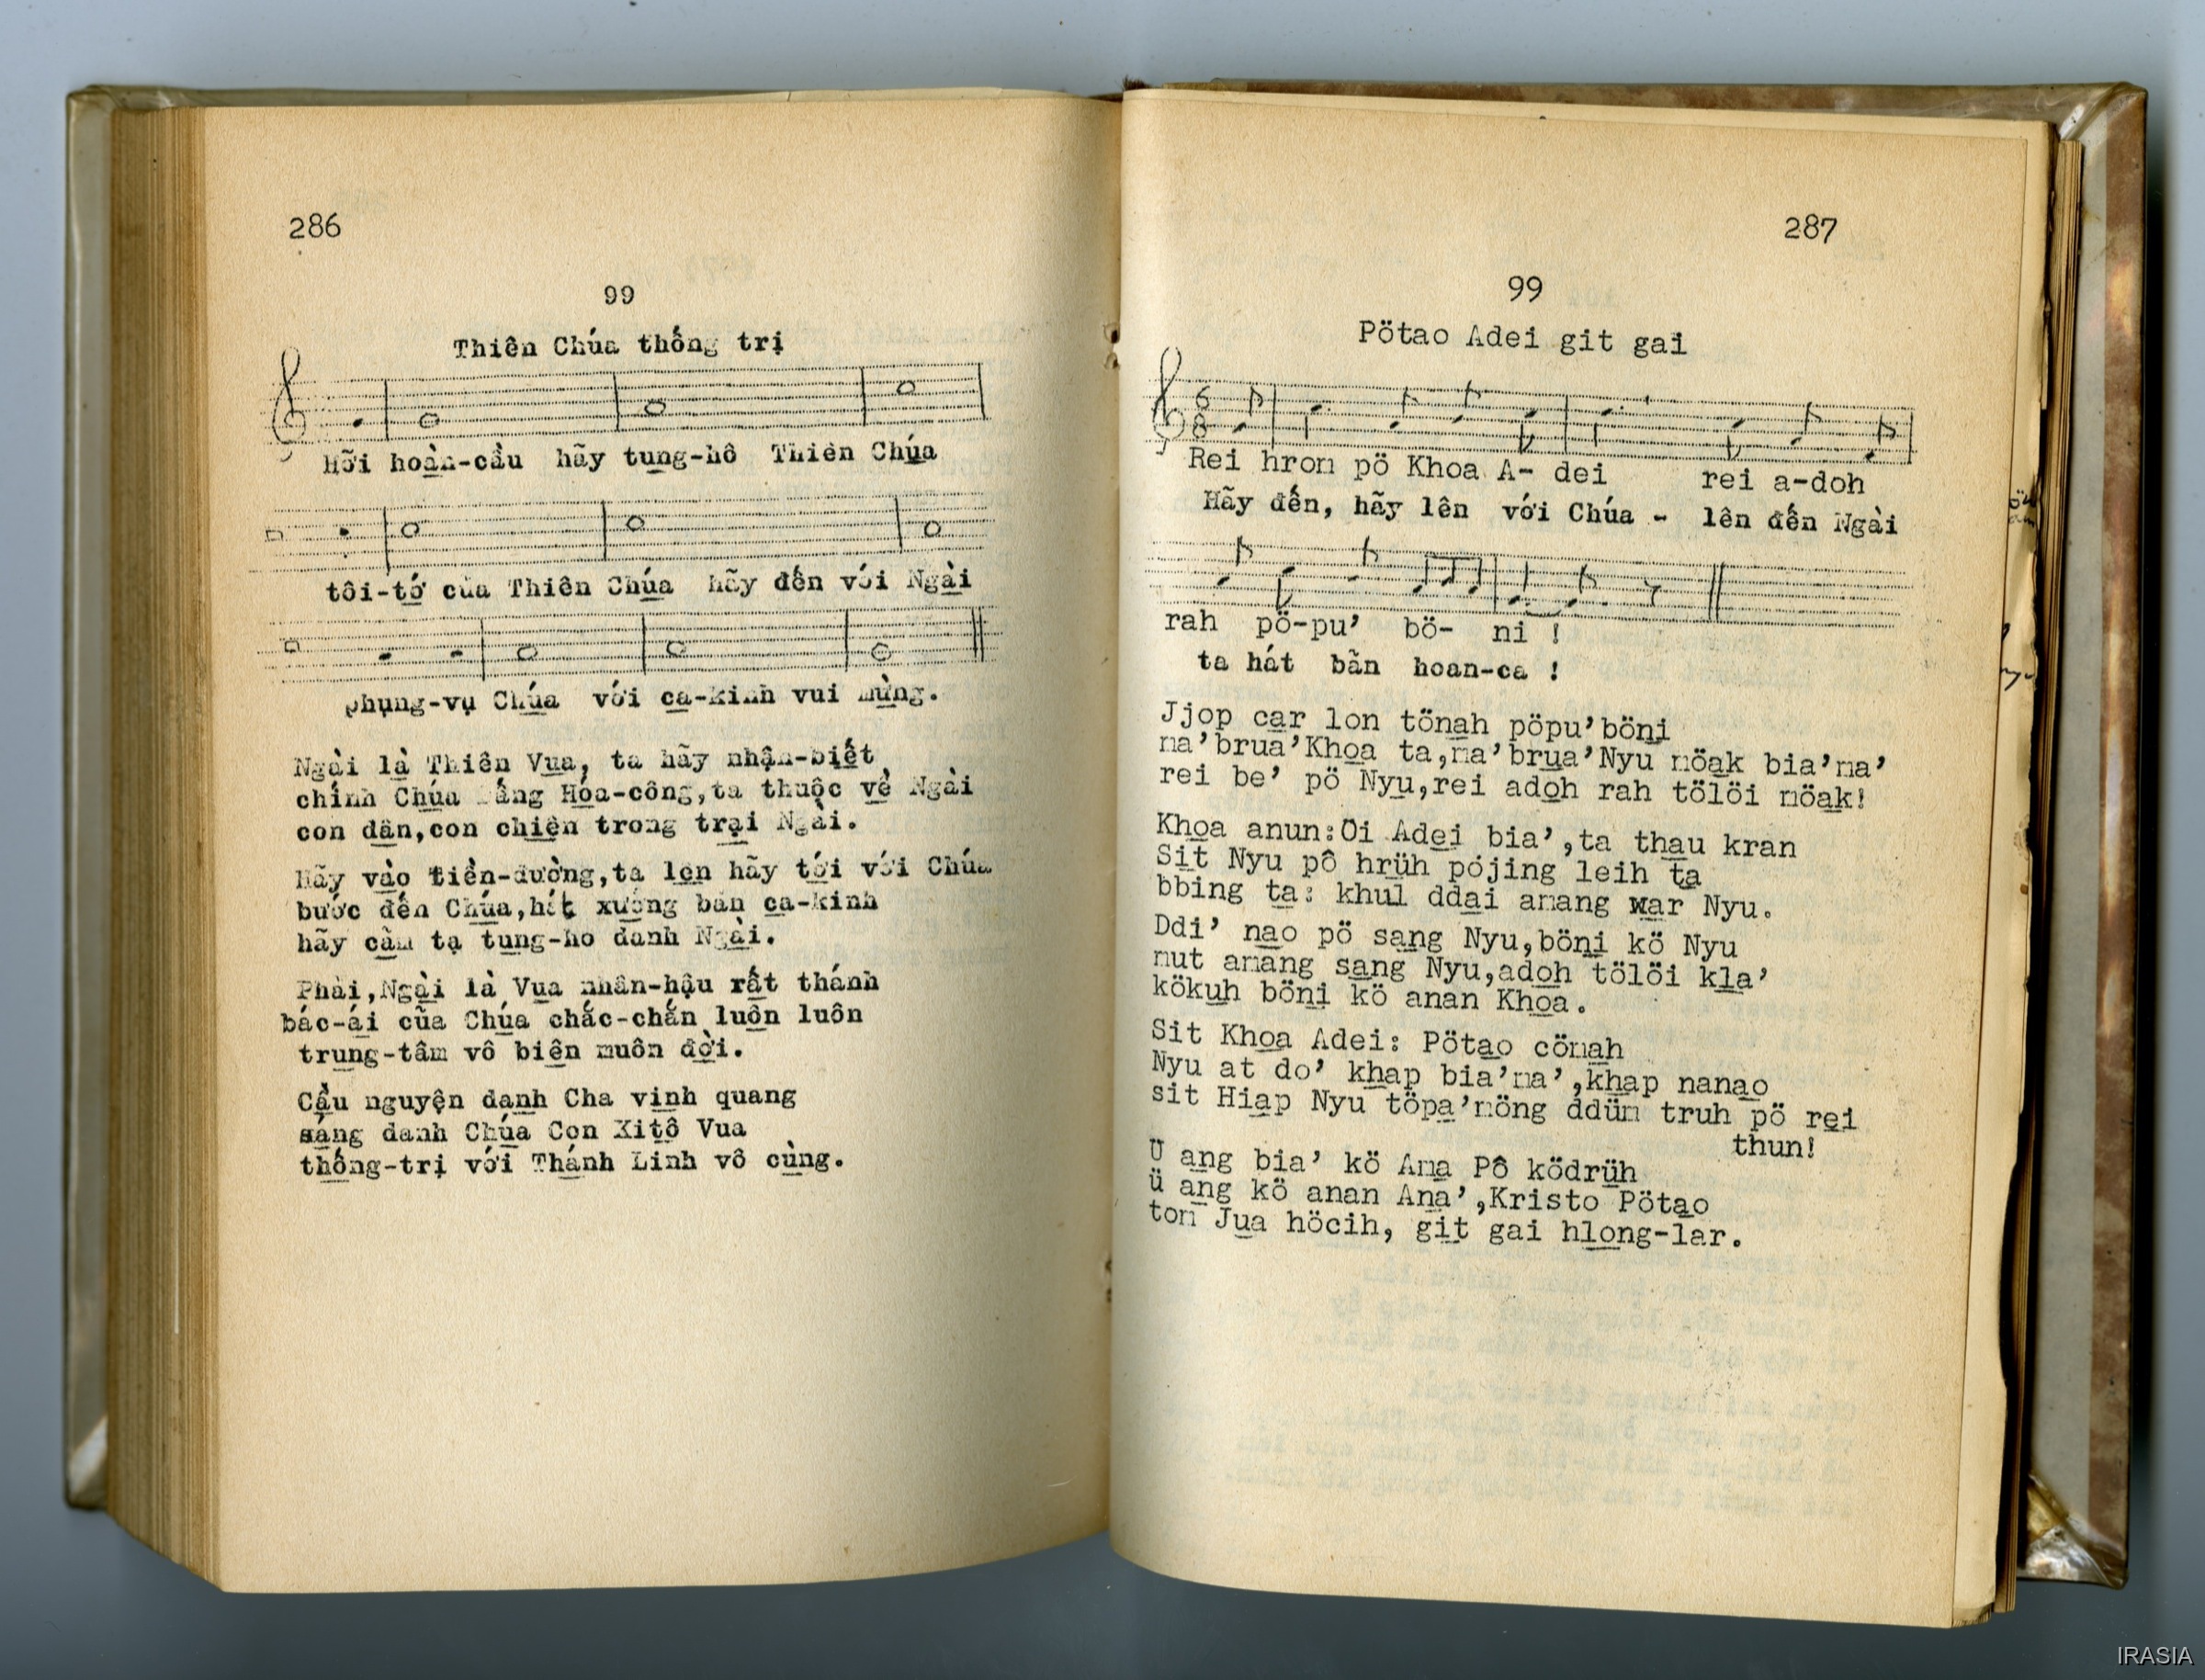 286
99
Thiên Chúa thống trị
Hỡi hoàn-cầu hãy tung-hô Thiên Chúa
tôi-tớ của Thiên Chúa hãy đến với Ngài
phụng-vụ Chúa với ca-kinh vui mừng.
Ngài là Thiên Vua, ta hãy nhận-biết
chính Chúa Hóa-công,ta thuộc về Ngài
con dân,con chiên trong trại Ngài.
Hãy vào tiền-đường,ta lên hãy tới với Chúa
bước đến Chúa,hát xướng bản ca-kinh
hãy cảm tạ tung-ho danh Ngài.
Phải,Ngài là Vua nhân-hậu rất thánh
bác-ái của Chúa chắc-chắn luôn luôn
trung-tâm vô biên muôn đời.
Cầu nguyện danh Cha vinh quang
sáng danh Chúa Con Kitô Vua
thống-trị với Thánh Linh vô cùng.
287
99
Pötao Adei git gai
6
8
Rei hron pö Khoa A- dei rei a-doh
Hãy đến, hãy lên với Chúa - lên đến Ngài
rah pö-pu' bö- ni !
ta hát bản hoan-ca !
Jjop car lon tönah pöpu'böni
na'brua'Khoa ta,na'brua'Nyu nöak bia'na'
rei be' pö Nyu,rei adoh rah tölöi nöak!
Khoa anun:Oi Adei bia',ta thau kran
Sit Nyu pô hrüh pójing leih ta
bbing ta: khul ddai anang war Nyu.
Ddi' nao pö sang Nyu,böni kö Nyu
nut anang sang Nyu,adoh tölöi kla'
kökuh böni kö anan Khoa.
Sit Khoa Adei: Pötao cönah
Nyu at do' khap bia'na',khap nanao
sit Hiap Nyu töpa'nöng ddün truh pö rei
thun!
U ang bia' kö Ama Pô ködrüh
ü ang kö anan Ana',Kristo Pötao
ton Jua höcih, git gai hlong-lar.
IRASIA